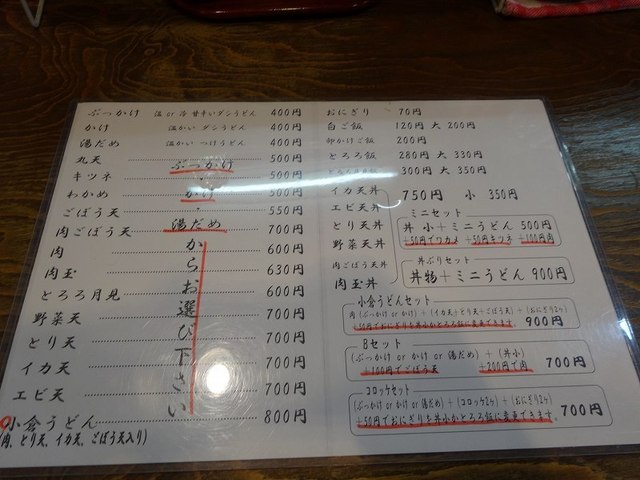 ぶっかけ 温 or 冷 甘辛いダシうどん 400円
かけ 温かい ダシうどん 400円
湯だめ 温かい つけうどん 400円
丸天 500円
キツネ 500円
わかめ 500円
ごぼう天 550円
肉ごぼう天 700円
肉 600円
肉玉 630円
とろろ月見 600円
野菜天 700円
とり天 700円
イカ天 700円
エビ天 700円
小倉うどん 800円
(肉、とり天、イカ天、ごぼう天入り)
ぶっかけ
かけ
湯だめ
からお選び下さい
おにぎり 70円
白ご飯 120円 大 200円
卵かけご飯 200円
とろろ飯 280円 大 330円
300円 大 350円
イカ天丼
エビ天丼
とり天丼
野菜天丼
肉ごぼう天丼
肉玉丼
750円 小 350円
ミニセット
丼 小 + ミニうどん 500円
+50円でワカメ +50円キツネ +100円肉
丼ぶりセット
丼物 + ミニうどん 900円
小倉うどんセット
肉 (ぶっかけ or かけ) + (イカ天+とり天+ごぼう天) + (おにぎり2ヶ)
+50円でおにぎりを丼小かとろろ飯に変更できます 900円
Bセット
(ぶっかけ or かけ or 湯だめ) + (丼小)
+100円でごぼう天 +200円で肉 700円
コロッケセット
(ぶっかけ or かけ or 湯だめ) + (コロッケ2ヶ) + (おにぎり2ヶ)
+50円でおにぎりを丼小かとろろ飯に変更できます。 700円